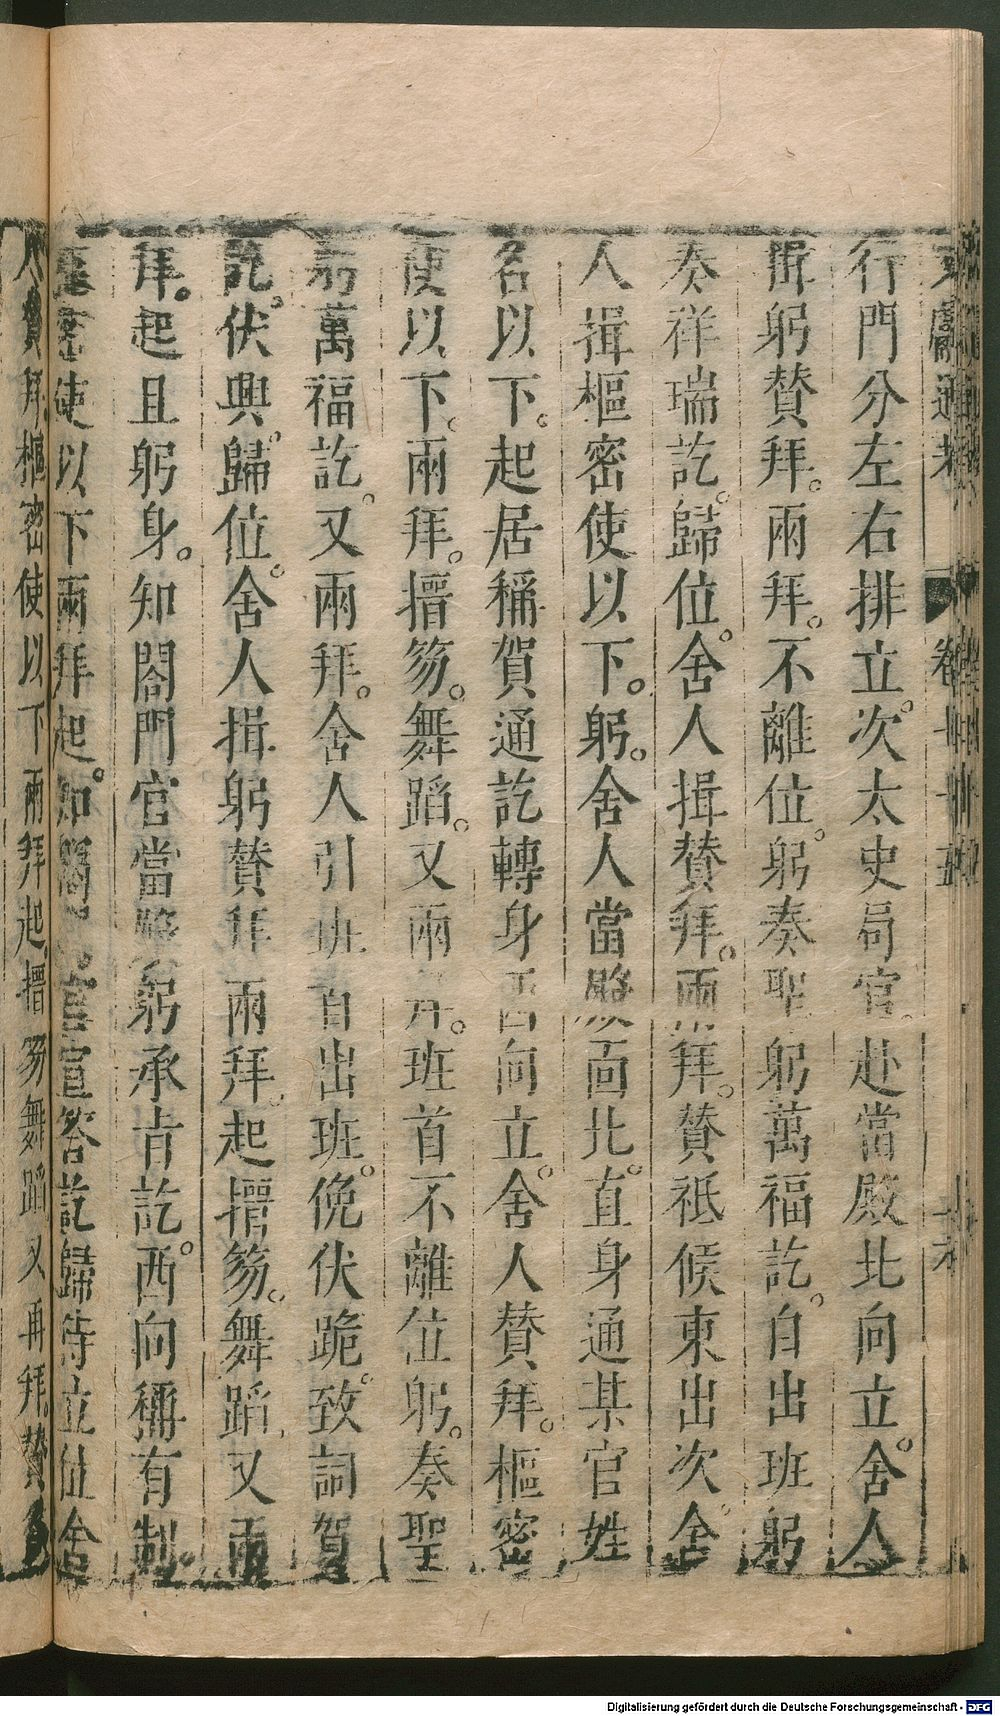 行門分左右排立次太史局官赴當殿北向立舍人
揖躬贊拜兩拜不離位躬奏聖躬萬福訖自出班躬
奏祥瑞訖歸位舍人揖贊拜兩拜贊祗候東出次舍
人揖樞密使以下躬舍人當殿面北直身通某官姓
名以下起居稱賀通訖轉身西向立舍人贊拜樞密
使以下兩拜搢笏舞蹈又兩拜班首不離位躬奏聖
躬萬福訖又兩拜舍人引班首出班俛伏跪致詞賀
訖伏興歸位舍人揖躬贊拜兩拜起搢笏舞蹈又兩
拜起且躬身知閤門官當殿躬承旨訖西向稱有制
樞密使以下兩拜起知閤門官宣答訖歸侍立位舍
人贊拜樞密使以下兩拜起搢笏舞蹈又再拜贊
Digitalisierung gefördert durch die Deutsche Forschungsgemeinschaft - DFG